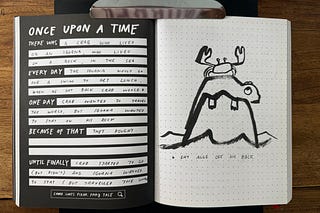 ONCE UPON A TIME
THERE WAS A CRAB WHO LIVED
ON AN IGUANA WHO LIVED
ON A ROCK IN THE SEA
EVERY DAY THE IGUANA WOULD GO
FOR A SWIM TO GET LUNCH
WHEN HE GOT BACK CRAB WOULD
ONE DAY CRAB WANTED TO TRAVEL
THE WORLD, BUT IGUANA WANTED
TO STAY ON HIS ROCK
BECAUSE OF THAT THEY FOUGHT
UNTIL FINALLY CRAB STARTED TO GO
(BUT DIDN'T) AND IGUANA WANTED
TO STAY (BUT TRAVELLED THE
EAT ALGE OFF HIS BACK